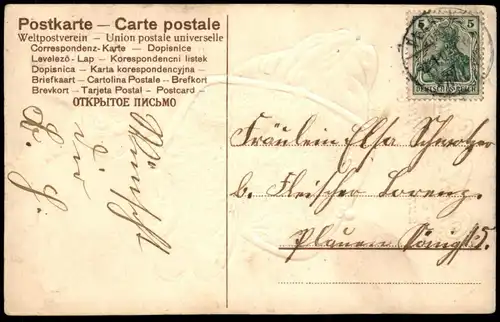 Postkarte – Carte postale
Weltpostverein – Union postale universelle
Correspondenz-Karte – Dopisnice
Levelező-Lap – Korespondencni listek
Dopisnica – Karta korespondencyjna –
Briefkaart – Cartolina Postale – Brefkort
Brevkort – Tarjeta Postal – Postcard –
ОТКРЫТОЕ ПИСЬМО
Wünscht
dir
5 5
DEUTSCHES REICH
Fräulein Elsa Schwotzer
b. Fleischer Lorenz.
Plauen Königst